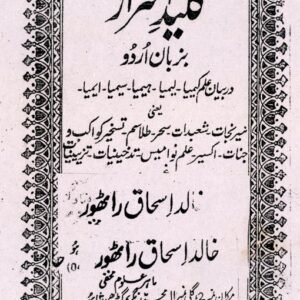 کلید اسرار
بزبان اُردو
در بیان علم کیمیا۔ لیمیا۔ ہیمیا۔ سیمیا۔ ایمیا۔
یعنی
نیرنجات۔ شعبدات۔ سحر۔ طلاسم۔ تسخیر کواکب و
جنات۔ اکسیر۔ علم نوامیس۔
خالد اسحاق راٹھور
خالد اسحاق راٹھور
ماہر علوم مخفی